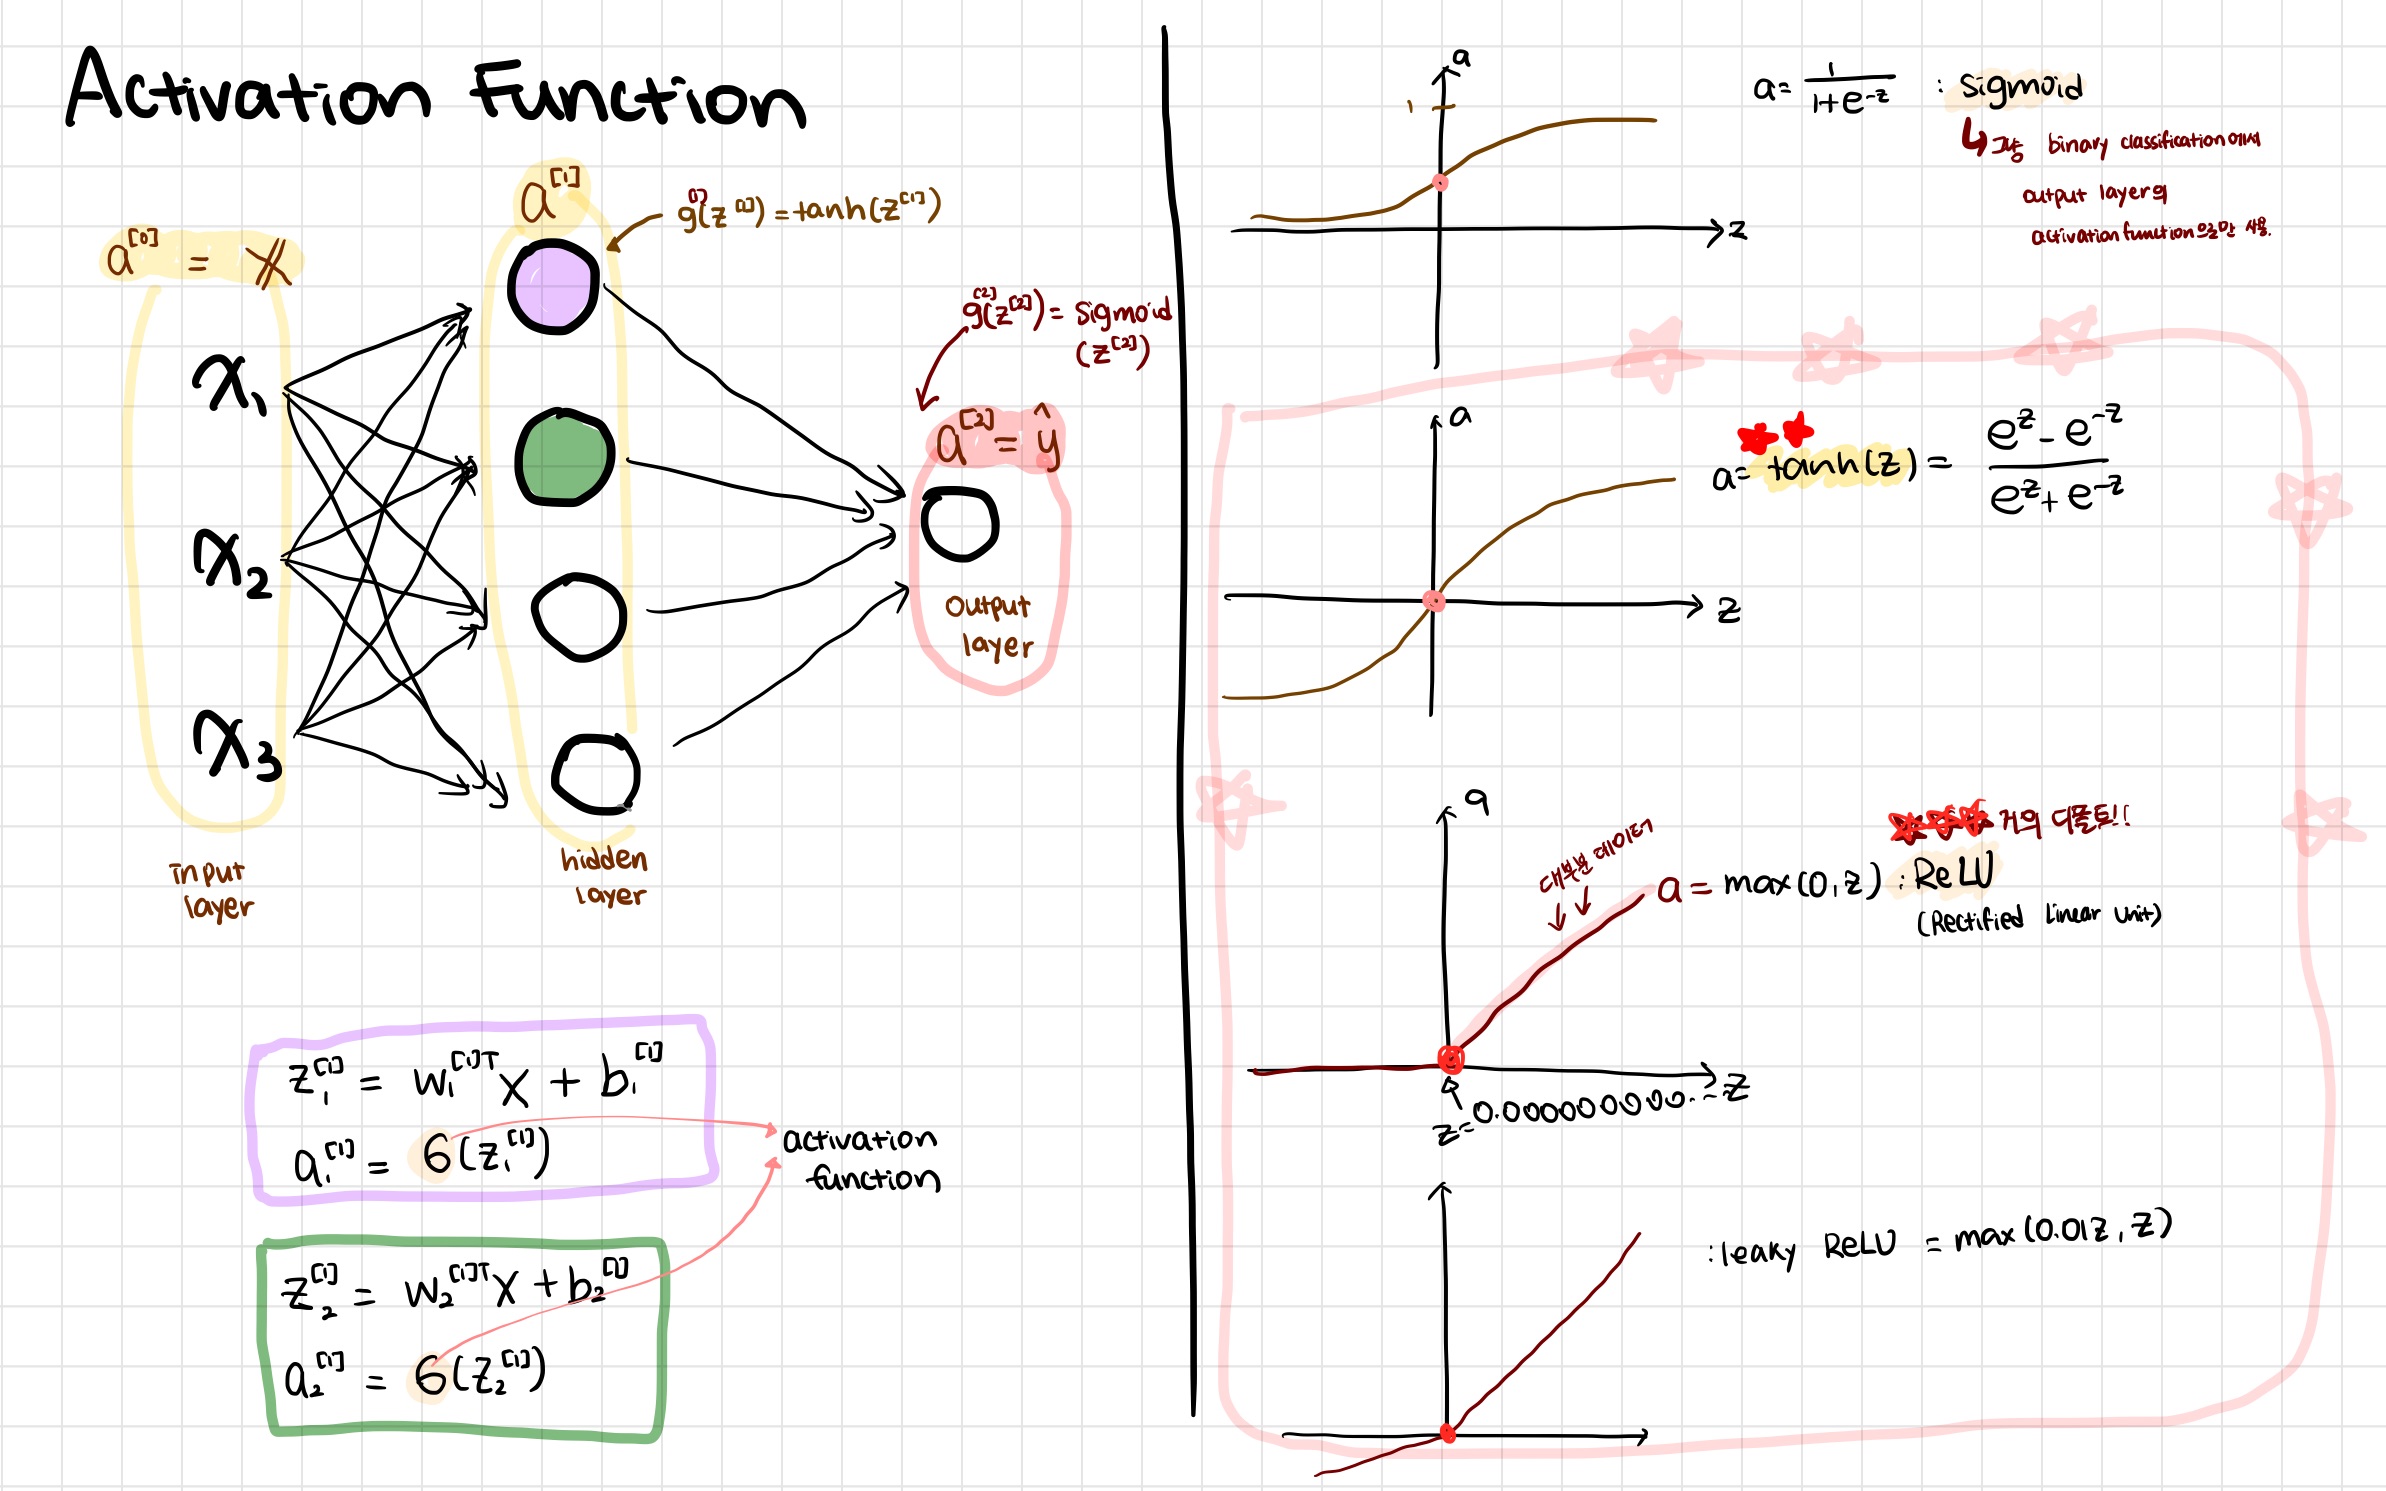 Activation Function
a[0] = X
a[1]
g[1](z[1]) = tanh(z[1])
g[2](z[2]) = Sigmoid
(z[2])
a[2] = ŷ
x1
x2
x3
input
layer
hidden
layer
output
layer
z1[1] = w1[1]T X + b1[1]
a1[1] = 6(z1[1])
activation
function
z2[1] = w2[1]T X + b2[1]
a2[1] = 6(z2[1])
a
1
z
a = 1/(1+e^-z) : Sigmoid
그냥 binary classification에서
output layer의
activation function으로만 사용.
a
z
a = tanh(z) = (e^z - e^-z)/(e^z + e^-z)
a
거의 디폴트!!
대부분 데이터
a = max(0, z) : ReLU
(Rectified Linear Unit)
z
z=0.000000000..
: leaky ReLU = max(0.01z, z)